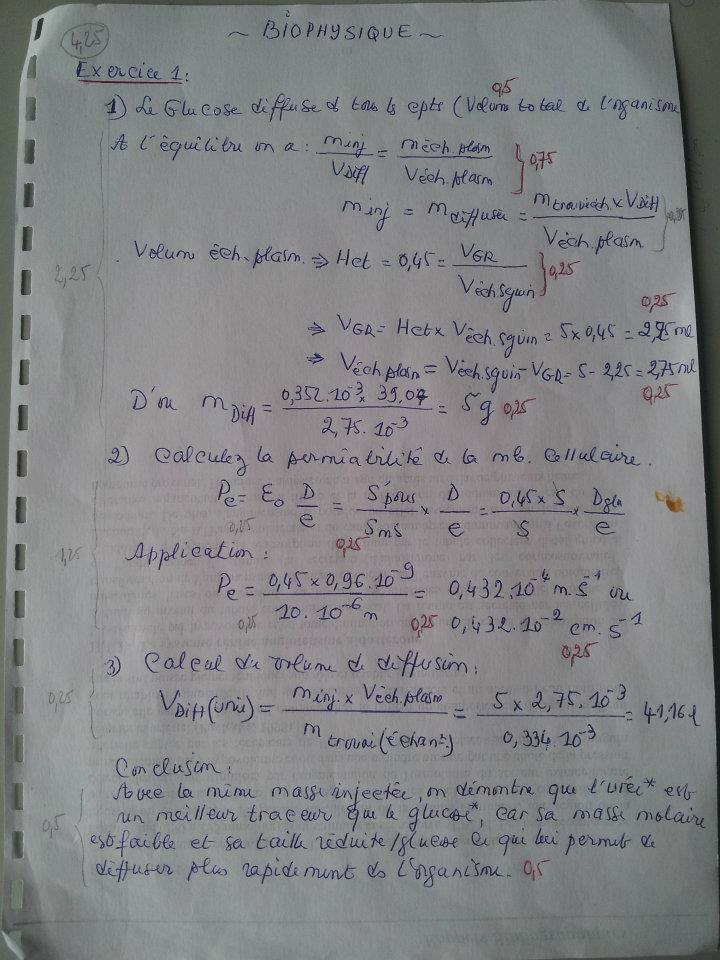 ~ BIOPHYSIQUE ~
4,25
Exercice 1:
0,5
1) Le Glucose diffuse ds tous ls cpts (Volume total de l'organisme
A l'équilibre on a: m inj / V Diff = m éch.plasm / V éch.plasm } 0,75
m inj = m diffuser = m trouv éch. × V Diff / V éch.plasm } 0,25
2,25
. Volum éch. plasm. ⇒ Hct = 0,45 = V GR / V éch sguin } 0,25
0,25
⇒ V GR = Hct × V éch.sguin = 5 × 0,45 = 2,25 ml
⇒ V éch.plasm = V éch.sguin - V GR = 5 - 2,25 = 2,75 ml
0,25
D'où m Diff = 0,352.10⁻³ × 39,07 / 2,75.10⁻³ = 5g 0,25
2) Calculez la permiabilité de la mb. cellulaire.
Pe = Ɛo D/e = S pous / S mb × D/e = 0,45 × S / S × D glu / e
0,25 0,25
1,25
Application :
Pe = 0,45 × 0,96.10⁻⁹ / 10.10⁻⁶ m = 0,432.10⁻⁴ m.s⁻¹ ou
0,25 0,25 0,432.10⁻² cm.s⁻¹
0,25
3) Calcul du volume de diffusion:
0,25
V Diff (urée) = m inj. × V éch.plasm / m trouvé (échant.) = 5 × 2,75.10⁻³ / 0,334.10⁻³ = 41,16 l
Conclusion:
Avec la même masse injectée, on démontre que l'urée* est
un meilleur traceur que le glucose*, car sa masse molaire
0,5
est faible et sa taille réduite/glucose Ce qui lui permet de
diffuser plus rapidement ds l'organisme. 0,5